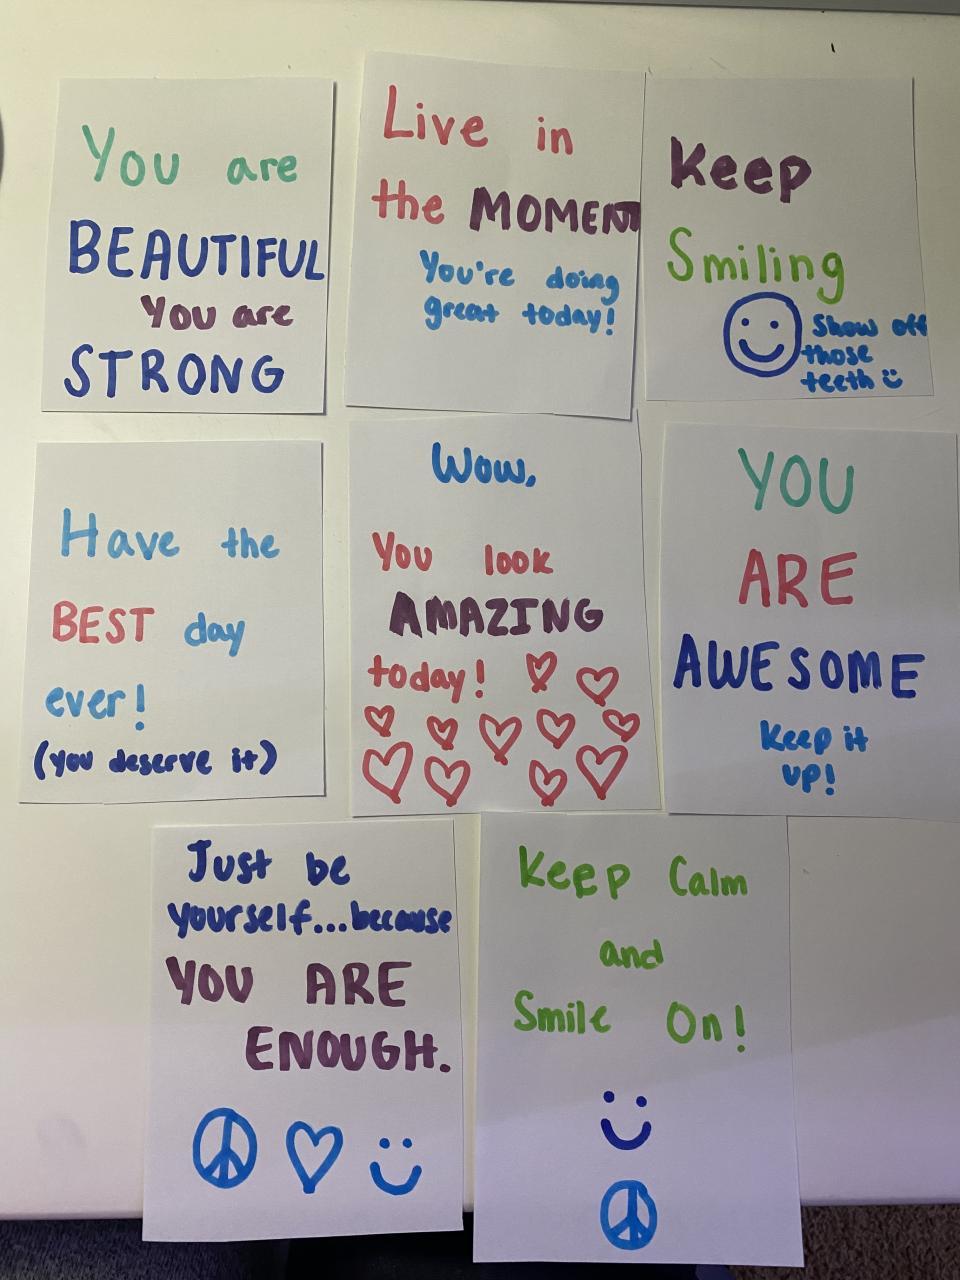 You are
BEAUTIFUL
You are
STRONG
Live in
the MOMENT
You're doing
great today!
Keep
Smiling
Show off
those
teeth
Have the
BEST day
ever!
(you deserve it)
Wow,
You look
AMAZING
today!
YOU
ARE
AWESOME
Keep it
up!
Just be
yourself...because
YOU ARE
ENOUGH.
Keep Calm
and
Smile On!